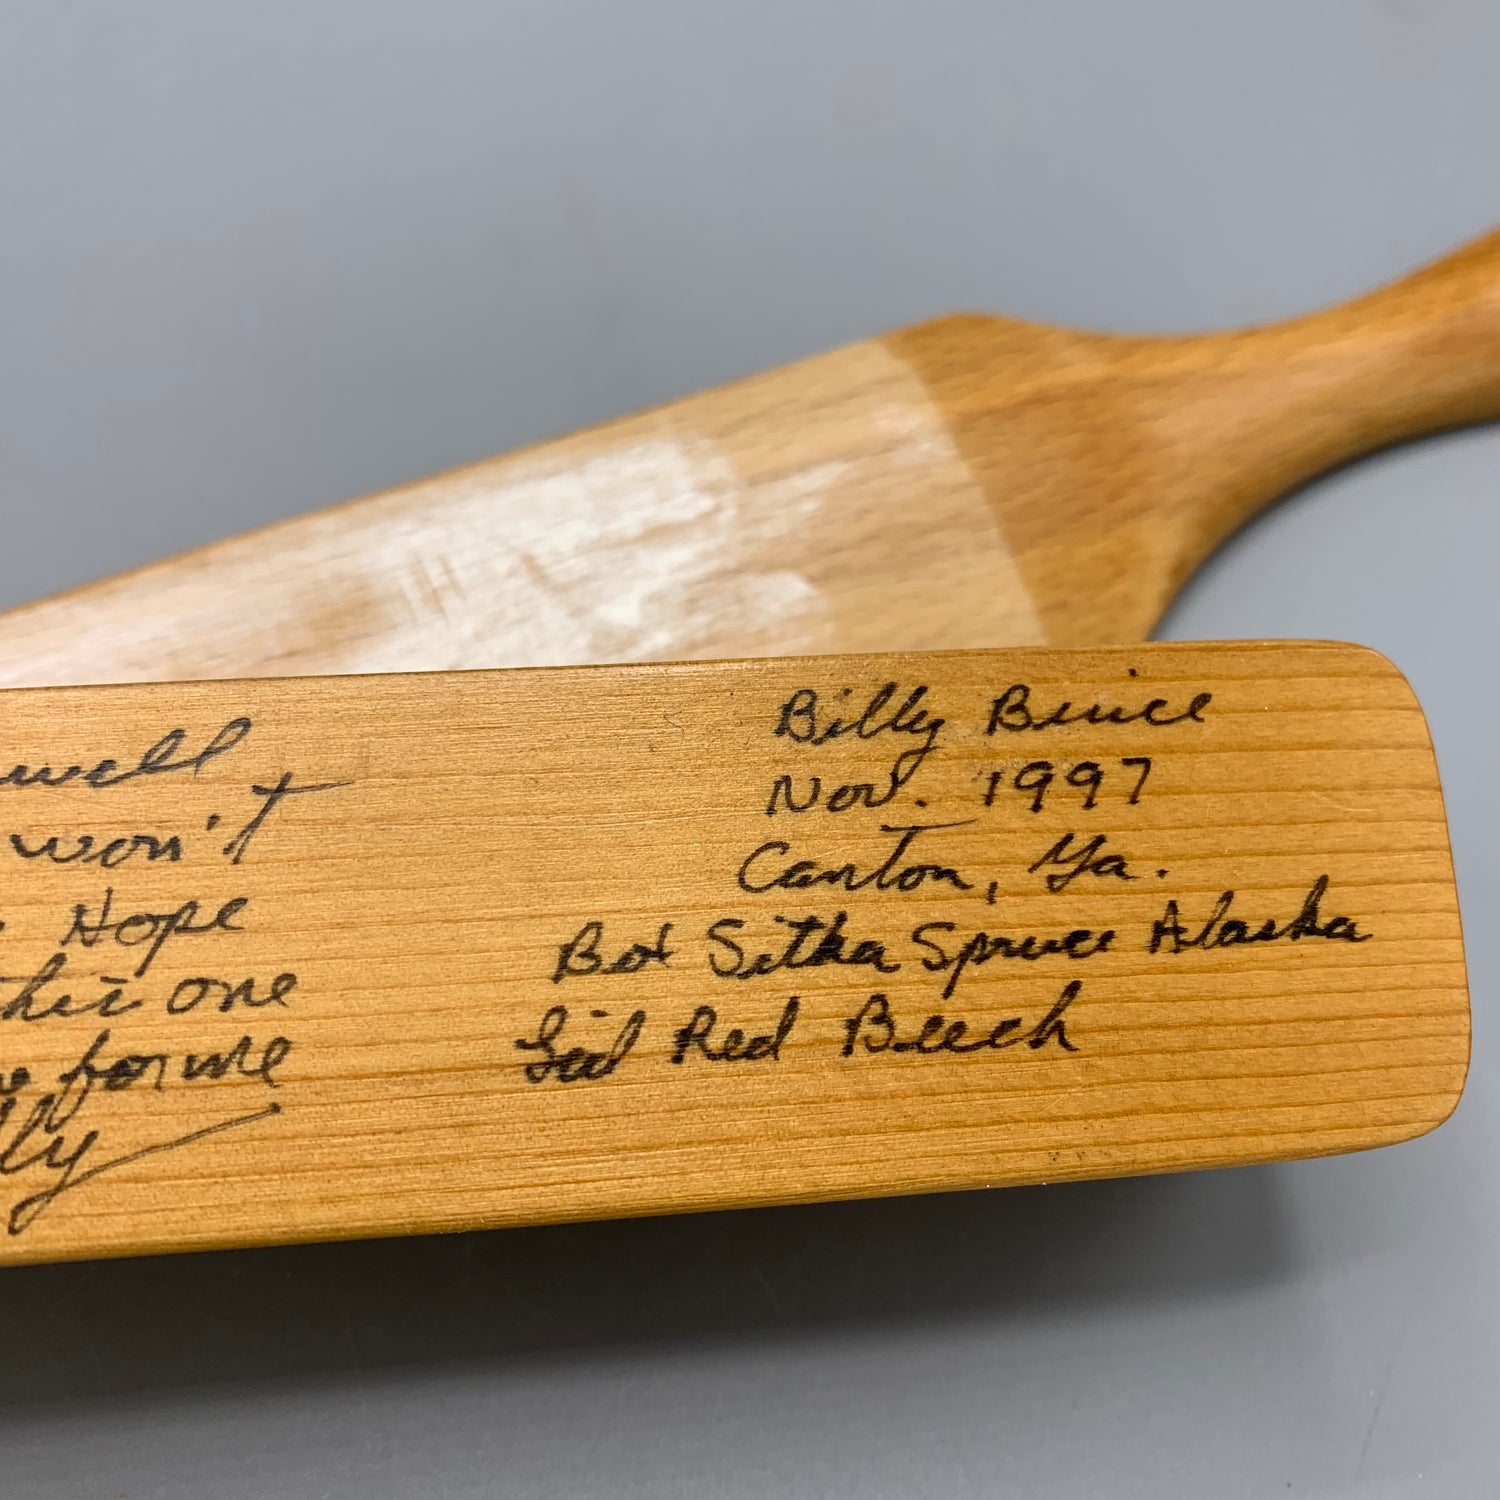 well
won't
Hope
this one
for me
Billy Buice
Nov. 1997
Canton, Ga.
Box Sitka Spruce Alaska
Lid Red Beech